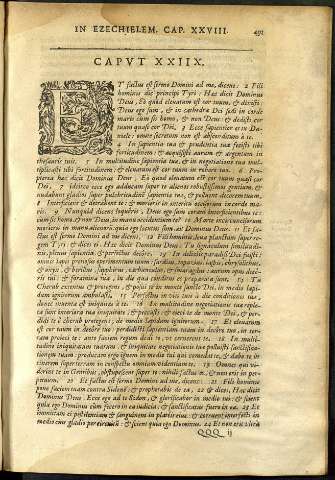 IN EZECHIELEM, CAP. XXVIII. 491
CAPVT XXIIX.
T factus est sermo Domini ad me, dicens: 2 Fili
hominis dic principi Tyri: Hæc dicit Dominus
Deus, Eò quòd eleuatum est cor tuum, & dixisti:
Deus ego sum, & in cathedra Dei sedi in corde
maris cùm sis homo, & non Deus: & dedisti cor
tuum quasi cor Dei, 3 Ecce sapientior es tu Da-
niele: omne secretum non est absconditum à te.
4 In sapientia tua & prudentia tua fecisti tibi
fortitudinem: & acquisisti aurum & argentum in
thesauris tuis. 5 In multitudine sapientiæ tuæ, & in negotiatione tua mul-
tiplicasti tibi fortitudinem: & eleuatum est cor tuum in robore tuo. 6 Pro-
pterea hæc dicit Dominus Deus, Eò quòd eleuatum est cor tuum quasi cor
Dei, 7 Idcirco ecce ego adducam super te alienos robustissimos gentium, &
nudabunt gladios super pulchritudinem sapientiæ tuæ, & polluent decorem tuum.
8 Interficient & detrahent te: & morieris in interitu occisorum in corde ma-
ris. 9 Nunquid dicens loqueris, Deus ego sum coram interficientibus te:
cum sis homo, & non Deus, in manu occidentium te? 10 Morte incircumcisorum
morieris in manu alienorum: quia ego locutus sum ait Dominus Deus. 11 Et fa-
ctus est sermo Domini ad me dicens, 12 Fili hominis leua planctum super re-
gem Tyri, & dices ei, Hæc dicit Dominus Deus: Tu signaculum similitu-
dinis, plenus sapientia & perfectus decore. 13 In deliciis paradisi Dei fuisti:
omnis lapis preciosus operimentum tuum: sardius, topazius, iaspis, chrysolithus,
& onyx, & beryllus, sapphirus, carbunculus, & smaragdus: aurum opus deco-
ris tui: & foramina tua, in die qua conditus es præparata sunt. 14 Tu
Cherub extentus & protegens, & posui te in monte sancto Dei, in medio lapi-
dum ignitorum ambulasti, 15 Perfectus in viis tuis à die conditionis tuæ,
donec inuenta est iniquitas in te. 16 In multitudine negotiationis tuæ reple-
ta sunt interiora tua iniquitate, & peccasti: & eieci te de monte Dei, & per-
didi te ô Cherub protegens, de medio lapidum ignitorum. 17 Et eleuatum
est cor tuum in decore tuo: perdidisti sapientiam tuam in decore tuo, in ter-
ram proieci te: ante faciem regum dedi te, vt cernerent te. 18 In mul-
titudine iniquitatum tuarum & iniquitate negotiationis tuæ polluisti sanctifica-
tionem tuam: producam ergo ignem de medio tui qui comedat te, & dabo te in
cinerem super terram in conspectu omnium videntium te. 19 Omnes qui vi-
derint te in Gentibus, obstupescent super te: nihili factus es, & non eris in per-
petuum. 20 Et factus est sermo Domini ad me, dicens: 21 Fili hominis
pone faciem tuam contra Sidonem, & prophetabis de ea, 22 & dices, Hæc dicit
Dominus Deus. Ecce ego ad te Sidon, & glorificabor in medio tui: & scient
quia ego Dominus cùm fecero in ea iudicia, & sanctificatus fuero in ea. 23 Et
immittam ei pestilentiam & sanguinem in plateis eius, & corruent interfecti in
medio eius gladio per circuitum: & scient quia ego Dominus. 24 Et non erit vltra
QQQ ij